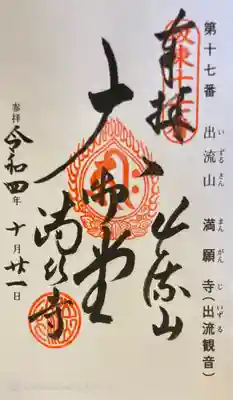 第十七番 出流山 満願寺(出流観音)
いずるさん まんがんじ いずる
奉拝
坂東十七番
大御堂
出流山
満願寺
参拝
令和四年 十月廿一日